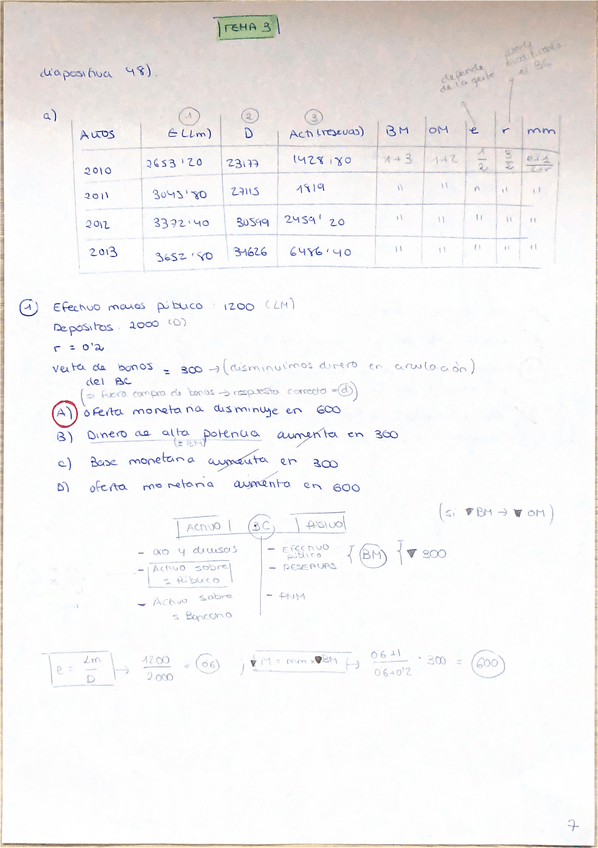 TEMA 3
diapositiva 48).
depende de la gente
el BC
a)
① ② ③
AÑOS E(Lm) D Activ(reservas) BM OM e r mm
2010 2653'20 23177 1428'80 1+3 1+2 1/2 3/2 e+1/e+r
2011 3045'80 27115 1819 " " " " "
2012 3372'40 30599 2459'20 " " " " "
2013 3652'80 34626 6486'40 " " " " "
① Efectivo manos público: 1200 (LM)
Depositos: 2000 (D)
r = 0'2
venta de bonos = 300 → (disminuimos dinero en circulación)
del BC
(= fuera compra de bonos → respuesta correcta = ⓓ)
A) oferta monetaria disminuye en 600
B) Dinero de alta potencia aumenta en 300
(= BM)
C) Base monetaria aumenta en 300
D) oferta monetaria aumenta en 600
(si ▼BM → ▼OM)
ACTIVO BC PASIVO
- oro y divisas - EFECTIVO público { BM } { ▼ 300
- Activo sobre s Público - RESERVAS
- Activo sobre s Bancario
e = Lm/D → 1200/2000 = 06 , ▼M = mm × ▼BM → 06+1/06+0'2 · 300 = 600
7